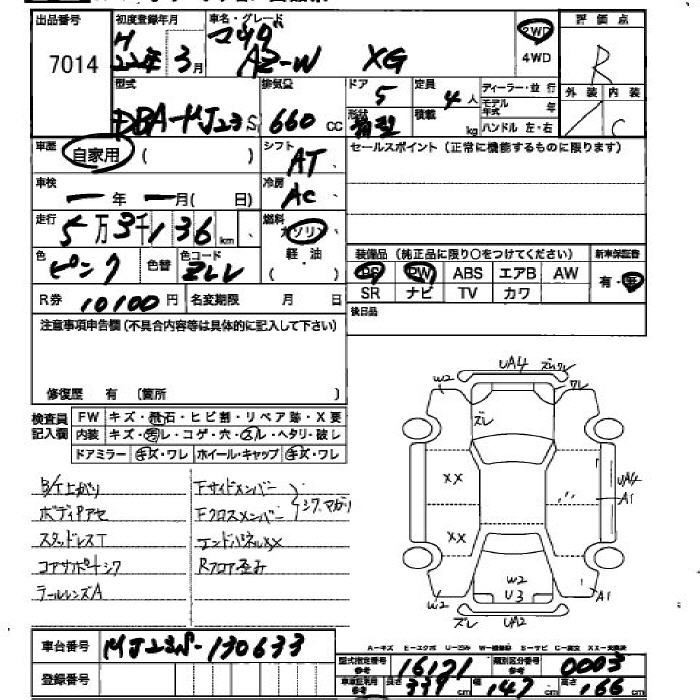 出品番号 初度登録年月 車名・グレード 評価点
7014 H22年3月 マツダ AZ-W XG 2WD 4WD R
型式 排気量 ドア 定員 ディーラー・並行 外装 内装
DBA-MJ23S 660cc 5 4人 モデル年式 年 C
形状 箱型 積載 kg ハンドル 左・右
車歴 自家用 ( ) シフト AT セールスポイント（正常に機能するものに限ります）
車検 ー年ー月( 日) 冷房 AC
走行 5万3千136km 燃料 ガソリン
色 ピンク 色替 色コード 軽・油 ( ) 装備品（純正品に限り○をつけてください） 新車保証書
PS PW ABS エアB AW 有・無
R券 10100円 名変期限 月 日 SR ナビ TV カワ
注意事項申告欄（不具合内容等は具体的に記入して下さい） 後日品
修復歴 有（箇所 ）
検査員記入欄 FW キズ・飛石・ヒビ割・リペア跡・X要
内装 キズ・汚レ・コゲ・穴・スレ・ヘタリ・破レ
ドアミラー キズ・ワレ ホイール・キャップ キズ・ワレ
UA4 ズレ ワレ
W2
ズレ
XX
UA4
A1
XX
W2
U3
W2 A1
ズレ UA2
B/T上がり Fサイドメンバー
ボディアセ Fクロスメンバー シワ、マガリ
スタッドレスT エンドパネルXX
コアサポートシワ Rフロア歪み
テールレンズA
A－キズ E－エクボ U－凹み W－補修跡 S－サビ C－腐食 XX－交換済
車台番号 MJ23S-130633 型式指定番号 参考 16171 類別区分番号 参考 0003
登録番号 車庫証明用 参考 長さ 339cm 幅 147cm 高さ 166cm